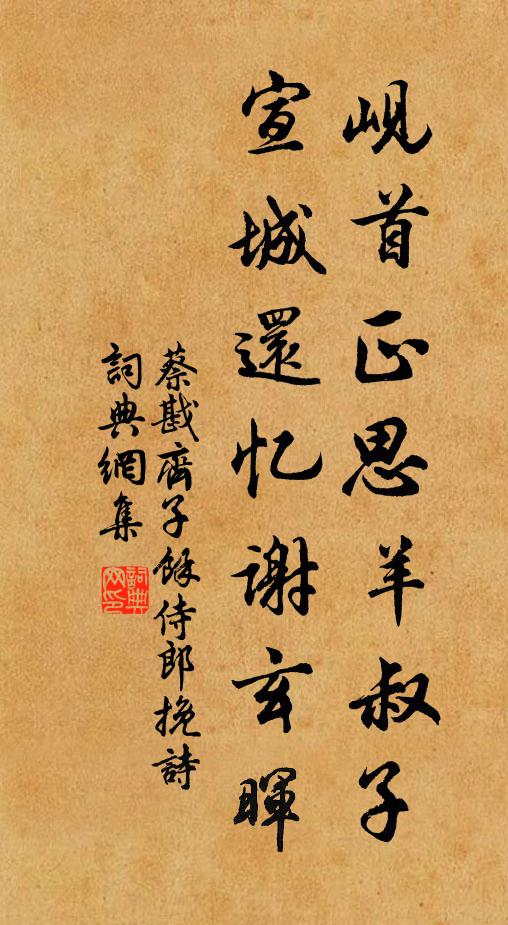 岘首正思羊叔子
宣城還忆謝玄暉
蔡戡齊子餘侍郎挽詩
詞典網集
詞典
网印